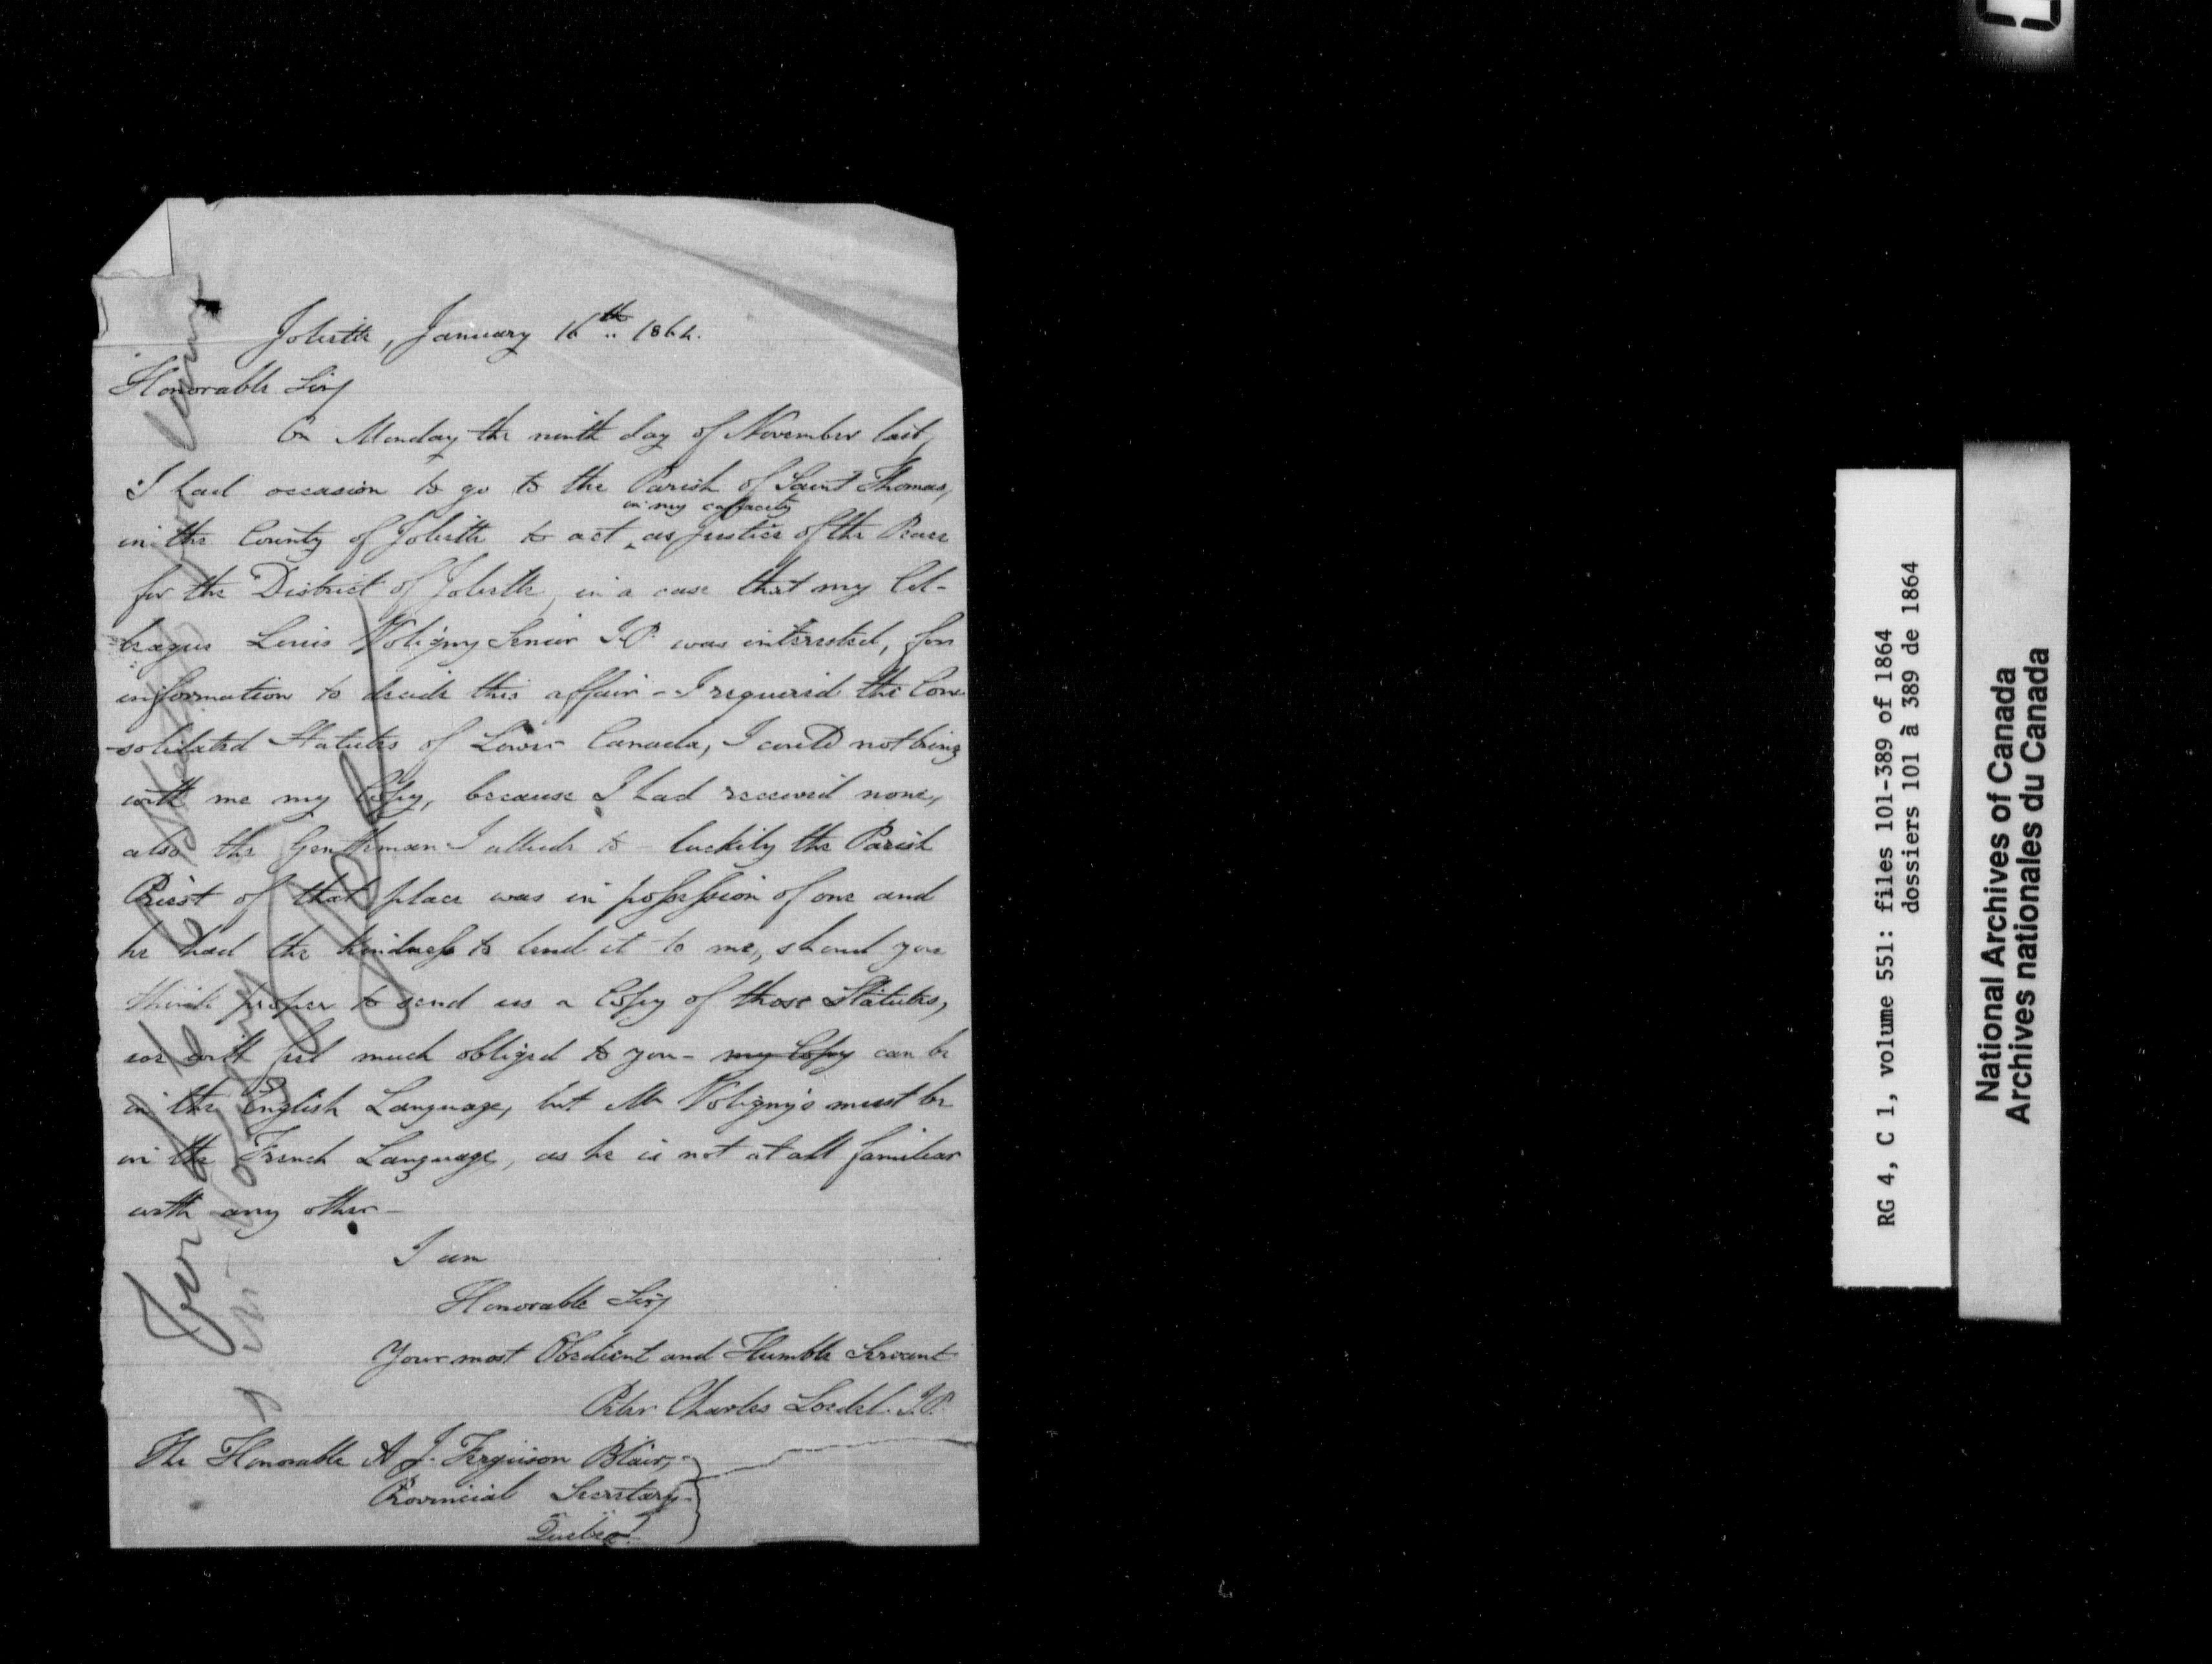 Joliette, January 16th 1864.
Honorable Sir,
On Monday the ninth day of November last,
I had occasion to go to the Parish of Saint Thomas,
in the County of Joliette to act in my capacity as Justice of the Peace
for the District of Joliette, in a case that my Col-
-leagues Louis Voligny Senior J.P. was interested, for
information to decide this affair - I required the Con-
-solidated Statutes of Lower Canada, I could not bring
with me my Copy, because I had received none,
also the Gentleman I allude to - luckily the Parish
Priest of that place was in possession of one and
he had the kindness to lend it to me, shoud you
think proper to send us a Copy of those Statutes,
we will feel much obliged to you - my Copy can be
in the English Language, but Mr Voligny's must be
in the French Language, as he is not at all familiar
with any other -
I am
Honorable Sir,
Your most Obedient and Humble Servant
Peter Charles Loedel. J.P.
The Honorable A J. Ferguson Blair,
Provincial Secretary
Quebec.
For the
RG 4, C 1, volume 551: files 101-389 of 1864
dossiers 101 à 389 de 1864
National Archives of Canada
Archives nationales du Canada